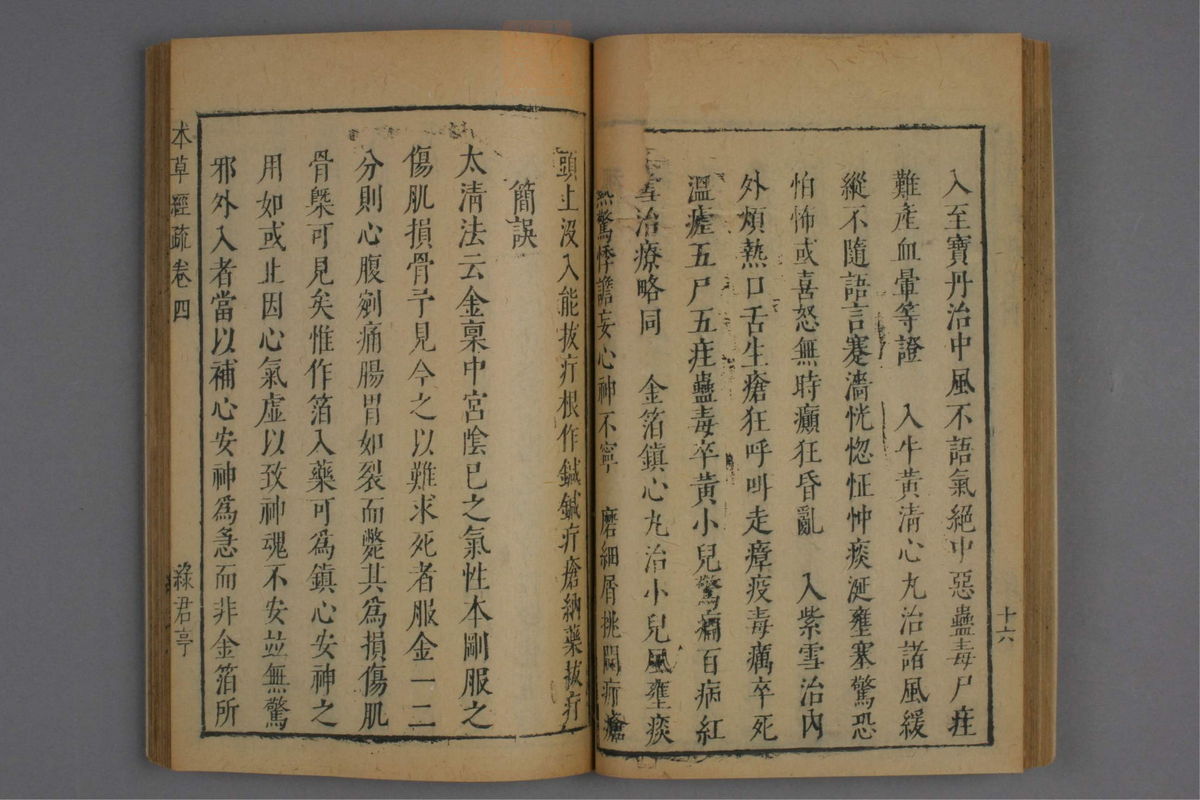 入至寶丹治中風不語氣絕中惡蠱毒尸疰
難產血暈等證　入牛黃清心丸治諸風緩
縱不隨語言蹇澁恍惚怔忡痰涎壅塞驚恐
怕怖或喜怒無時癲狂昏亂　入紫雪治內
外煩熱口舌生瘡狂呼呌走瘴疫毒癘卒死
溫瘧五尸五疰蠱毒卒黃小兒驚癇百病紅
雪治療略同　金箔鎮心丸治小兒風壅痰
熱驚悸譫妄心神不寧　磨細屑挑開疔瘡
十六
頭上沒入能拔疔根作鍼鍼疔瘡納藥拔疔
簡誤
太清法云金稟中宮陰巳之氣性本剛服之
傷肌損骨予見今之以難求死者服金一二
分則心腹剜痛腸胃如裂而斃其為損傷肌
骨槩可見矣惟作箔入藥可為鎮心安神之
用如或止因心氣虛以致神魂不安並無驚
邪外入者當以補心安神為急而非金箔所
本草經疏卷四
綠君亭